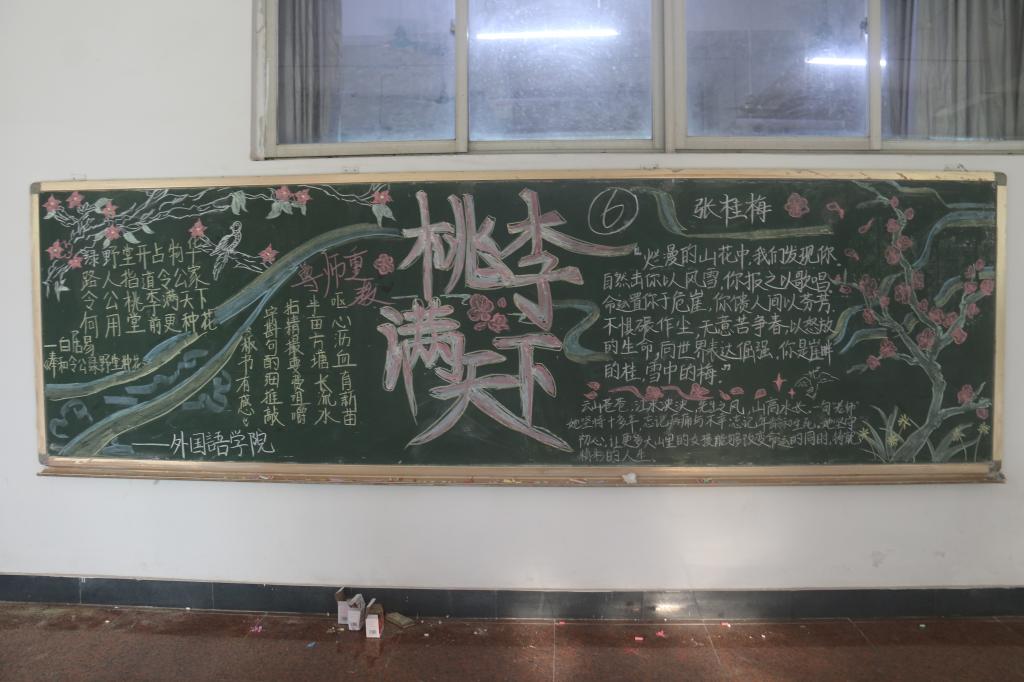 绿野堂开占物华
路人指道令公家
令公桃李满天下
何用堂前更种花
—白居易
《奉和令公绿野堂种花》
——外国語学院
尊师重教
呕心沥血育新苗
半亩方塘长流水
《板书有感》
桃李
满天下
⑥
张桂梅
“烂漫的山花中,我们发现你.
自然击你以风雪,你报之以歌唱
命运置你于危崖,你馈人间以芬芳.
不惧碾作尘,无意苦争春,以怒放
的生命,向世界表达倔强,你是崖畔
的桂,雪中的梅.”
云山苍苍,江水泱泱,先生之风,山高水长.一句“老师”
她坚持十多年,忘记病痛与不幸,忘记年龄和生死,她坚守
初心,让更多大山里的女孩能够改变命运的同时,铸就
精彩的人生.